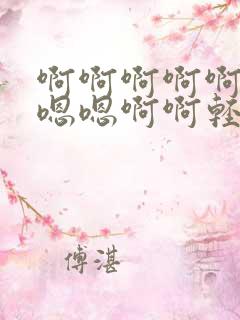 啊啊啊啊啊
嗯嗯啊啊轻
傅湛